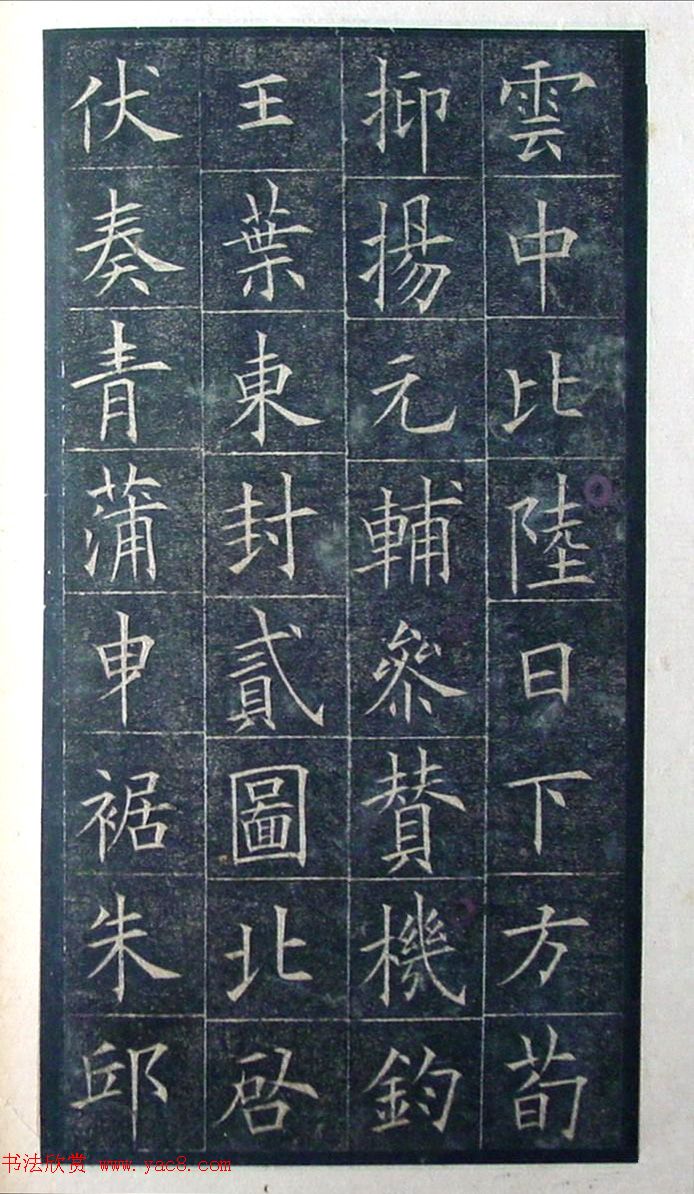 雲中比陸日下方荀
抑揚元輔參賛機鈞
王葉東封貳圖北啓
伏奏青蒲申裾朱邱
书法欣赏 www.yac8.com